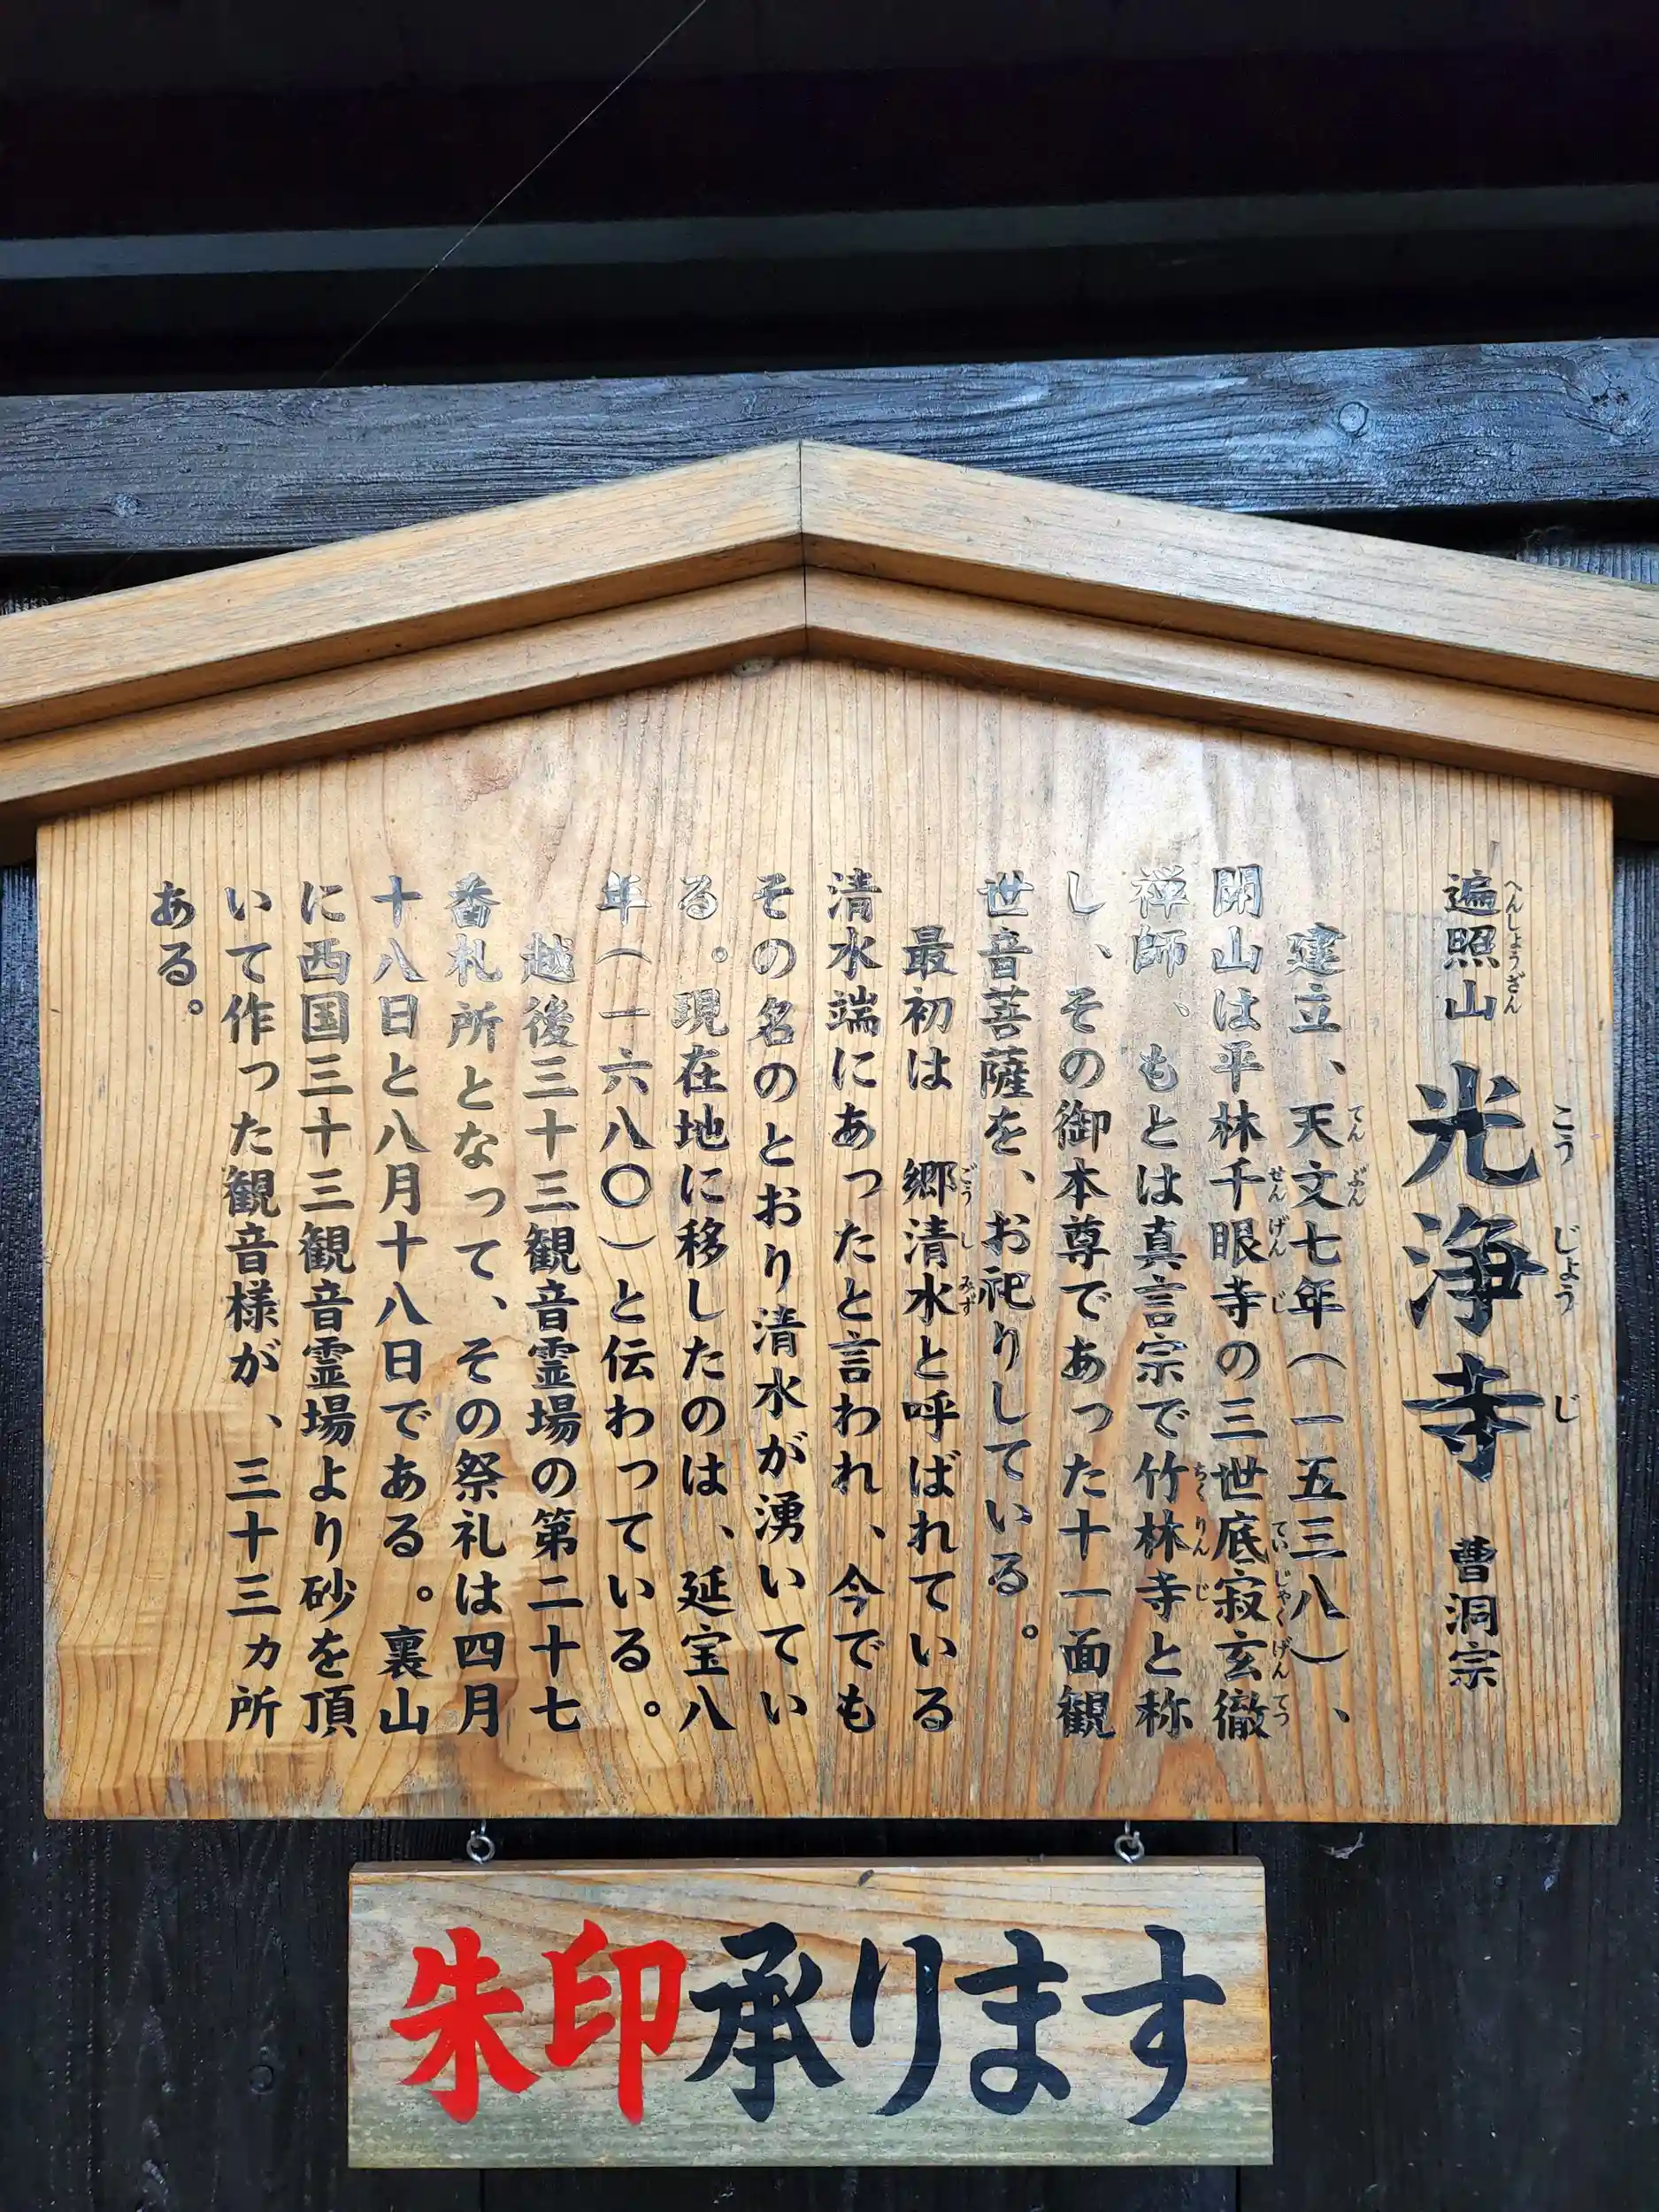 遍照山 光浄寺 曹洞宗
へんしょうざん こうじょうじ
建立、天文七年(一五三八)、
てんぶん
開山は平林千眼寺の三世底寂玄徹
せんげんじ ていじゃくげんてつ
禅師、もとは真言宗で竹林寺と称
ちくりんじ
し、その御本尊であった十一面観
世音菩薩を、お祀りしている。
最初は 郷清水と呼ばれている
ごうしみず
清水端にあったと言われ、今でも
その名のとおり清水が湧いてい
る。現在地に移したのは、延宝八
年(一六八〇)と伝わっている。
越後三十三観音霊場の第二十七
番札所となって、その祭礼は四月
十八日と八月十八日である。裏山
に西国三十三観音霊場より砂を頂
いて作った観音様が、三十三ヵ所
ある。
朱印承ります